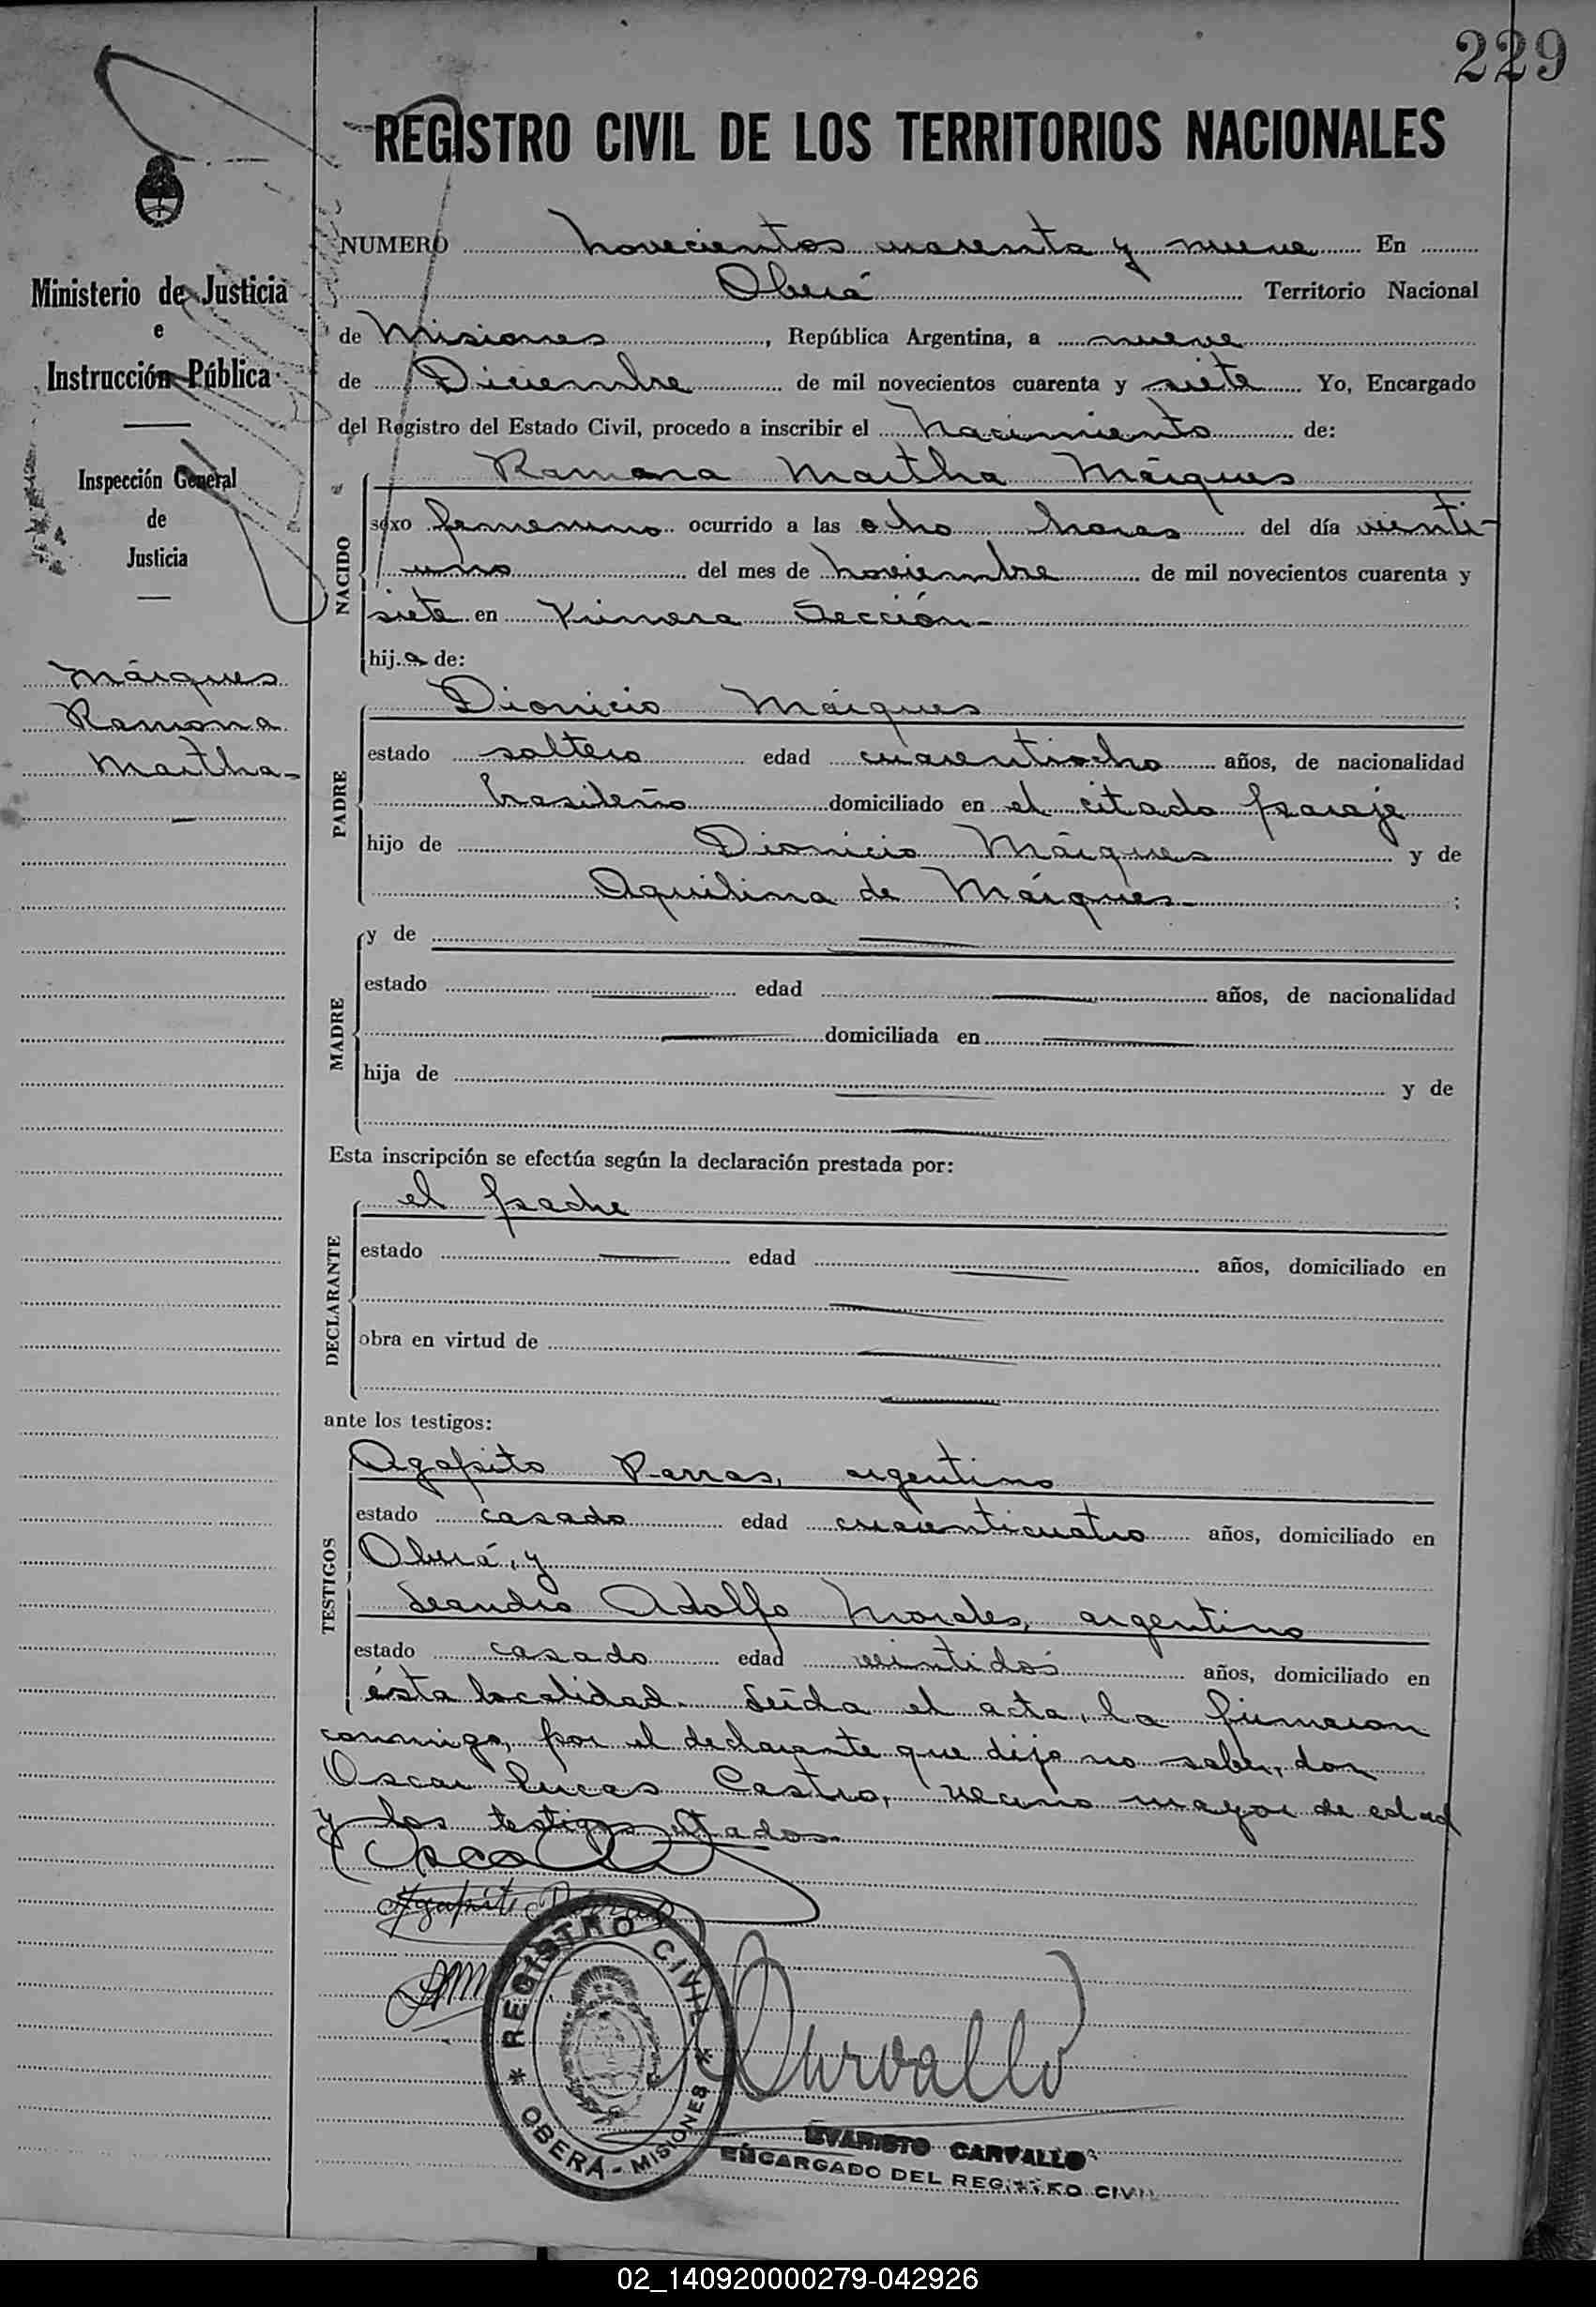 229
REGISTRO CIVIL DE LOS TERRITORIOS NACIONALES
Ministerio de Justicia
e
Instrucción Pública
Inspección General
de
Justicia
Márques
Ramona
Martha-
NUMERO novecientos cuarenta y nueve En
Oberá Territorio Nacional
de Misiones, República Argentina, a nueve
de Diciembre de mil novecientos cuarenta y siete Yo, Encargado
del Registro del Estado Civil, procedo a inscribir el nacimiento de:
NACIDO
Ramona Martha Márques
sexo femenino ocurrido a las ocho horas del día vienti-
uno del mes de noviembre de mil novecientos cuarenta y
siete en Primera Sección-
hij.a de:
PADRE
Dionicio Márques
estado soltero edad cuarentiocho años, de nacionalidad
brasileño domiciliado en el citado paraje
hijo de Dionicio Márques y de
Aquilina de Márques- ;
MADRE
y de
estado edad años, de nacionalidad
domiciliada en
hija de y de
Esta inscripción se efectúa según la declaración prestada por:
DECLARANTE
el padre
estado edad años, domiciliado en
obra en virtud de
ante los testigos:
TESTIGOS
Agapito Parras, argentino
estado casado edad cuarenticuatro años, domiciliado en
Oberá, y
Leandro Adolfo Morales, argentino
estado casado edad veintidós años, domiciliado en
ésta localidad. Leída el acta, la firmaron
conmigo, por el declarante que dijo no saber, don
Oscar Lucas Castro, vecino mayor de edad
y los testigos citados.
Agapito Parras
REGISTRO CIVIL
* OBERÁ - MISIONES *
Carvallo
EVARISTO CARVALLO
ENCARGADO DEL REGISTRO CIVIL
02_140920000279-042926